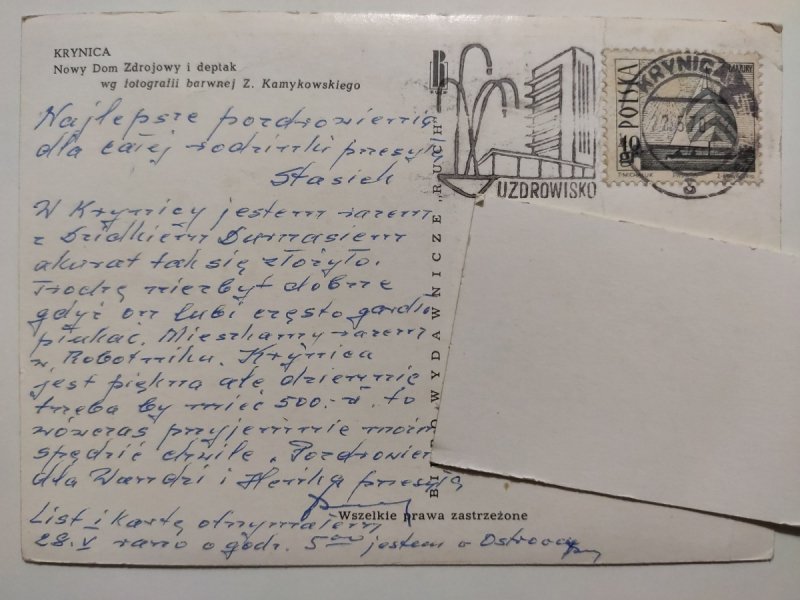 KRYNICA
Nowy Dom Zdrojowy i deptak
wg fotografii barwnej Z. Kamykowskiego
Najlepsze pozdrowienia
dla całej rodzinki przesyła
Stasiek
W Krynicy jestem razem
z Dzidkiem Durnasiem
akurat tak się złożyło.
Trochę niezbyt dobrze
gdyż on lubi często gardło
płukać. Mieszkamy razem
w Robotniku. Krynica
jest piękna ale dziennie
trzeba by mieć 500.-zł. to
wówczas przyjemnie można
spędzić chwile. Pozdrowien
dla Wandzi i Heńka przesyła
List i kartę otrzymałem
28.V rano o godz. 5⁰⁰ jestem w Ostrowcu
BIURO WYDAWNICZE „RUCH"
Wszelkie prawa zastrzeżone
UZDROWISKO
KRYNICA
POLSKA
10 gr
MAZURY